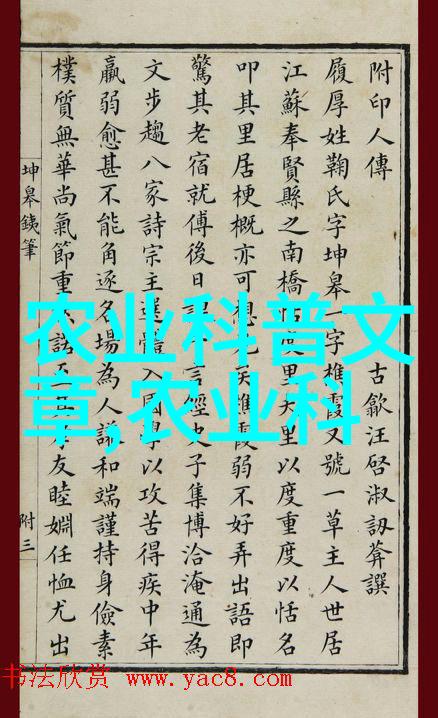 附印人傳
古歙汪啓淑訒葊譔
履厚姓鞠氏字坤皋一字樵霞又號一草主人世居
江蘇奉賢縣之南橋里大里以度重度以恬名
叩其里居梗概亦可想見矣樵霞弱不好弄出語即
驚其老宿就傅後日言經史子集博洽淹通為
文步趨八家詩宗主選體入國學以攻苦得疾中年
羸弱愈甚不能角逐名場為人謙和端謹持身儉素
樸質無華尚氣節重友睦婣任恤尤出
坤皋鐵筆
附三
农业科普文
章,农业科
书法欣赏 www.yac8.com